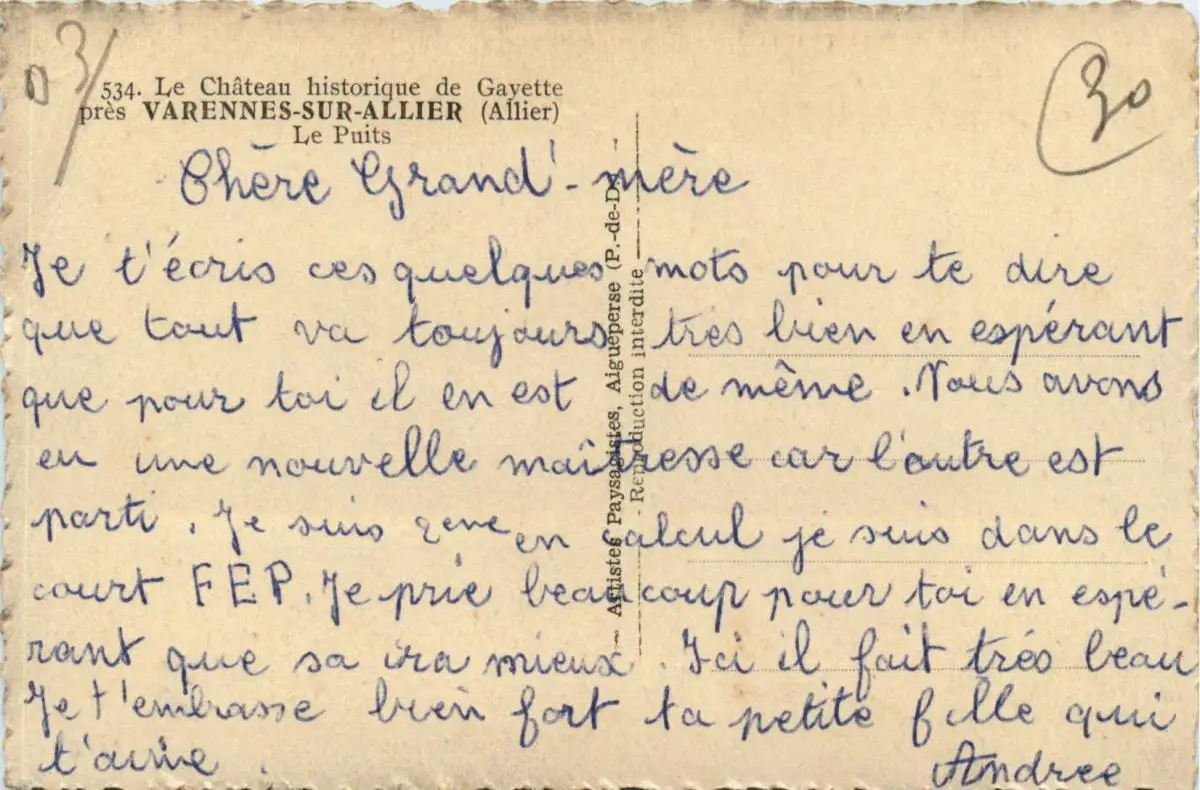 03
30
534. Le Château historique de Gayette
près VARENNES-SUR-ALLIER (Allier)
Le Puits
Chère Grand'-mère
Je t'écris ces quelques mots pour te dire
que tout va toujours très bien en espérant
que pour toi il en est de même. Nous avons
eu une nouvelle maîtresse car l'autre est
parti. Je suis 2ème en calcul je suis dans le
court FEP. Je prie beaucoup pour toi en espé-
rant que sa ira mieux. Ici il fait trés beau
Je t'embrasse bien fort ta petite fille qui
t'aime.
Andree
Artistes Paysagistes, Aigueperse (P.-de-D.)
Reproduction interdite